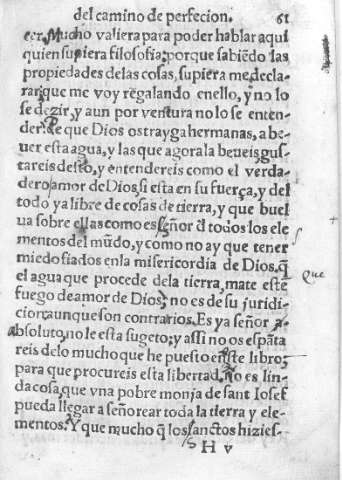 del camino de perfecion. 61
cer. Mucho valiera para poder hablar aqui
quien supiera filosofia: porque sabiẽdo las
propiedades delas cosas, supiera me decla-
rar: que me voy regalando enello, y no lo
se dezir, y aun por ventura no lo se enten-
der. De que Dios ostrayga hermanas, a be-
uer esta agua, y las que agora la beueis, gus-
tareis desto, y entendereis como el verda-
dero amor de Dios, si esta en su fuerça, y del
todo ya libre de cosas de tierra, y que buel
ua sobre ellas como es señor đ todos los ele
mentos del mũdo, y como no ay que tener
miedo fiados enla misericordia de Dios. q̃
el agua que procede dela tierra, mate este
fuego de amor de Dios, no es de su juridi-
cion: aunque son contrarios. Es ya señor a-
absoluto, no le esta sugeto; y assi no os espãta
reis delo mucho que he puesto en este libro,
para que procureis esta libertad. No es lin-
da cosa, que vna pobre monja de sant Iosef
pueda llegar a señorear toda la tierra y ele-
mentos? Y que mucho q̃ los sanctos hizies-
H v
Que